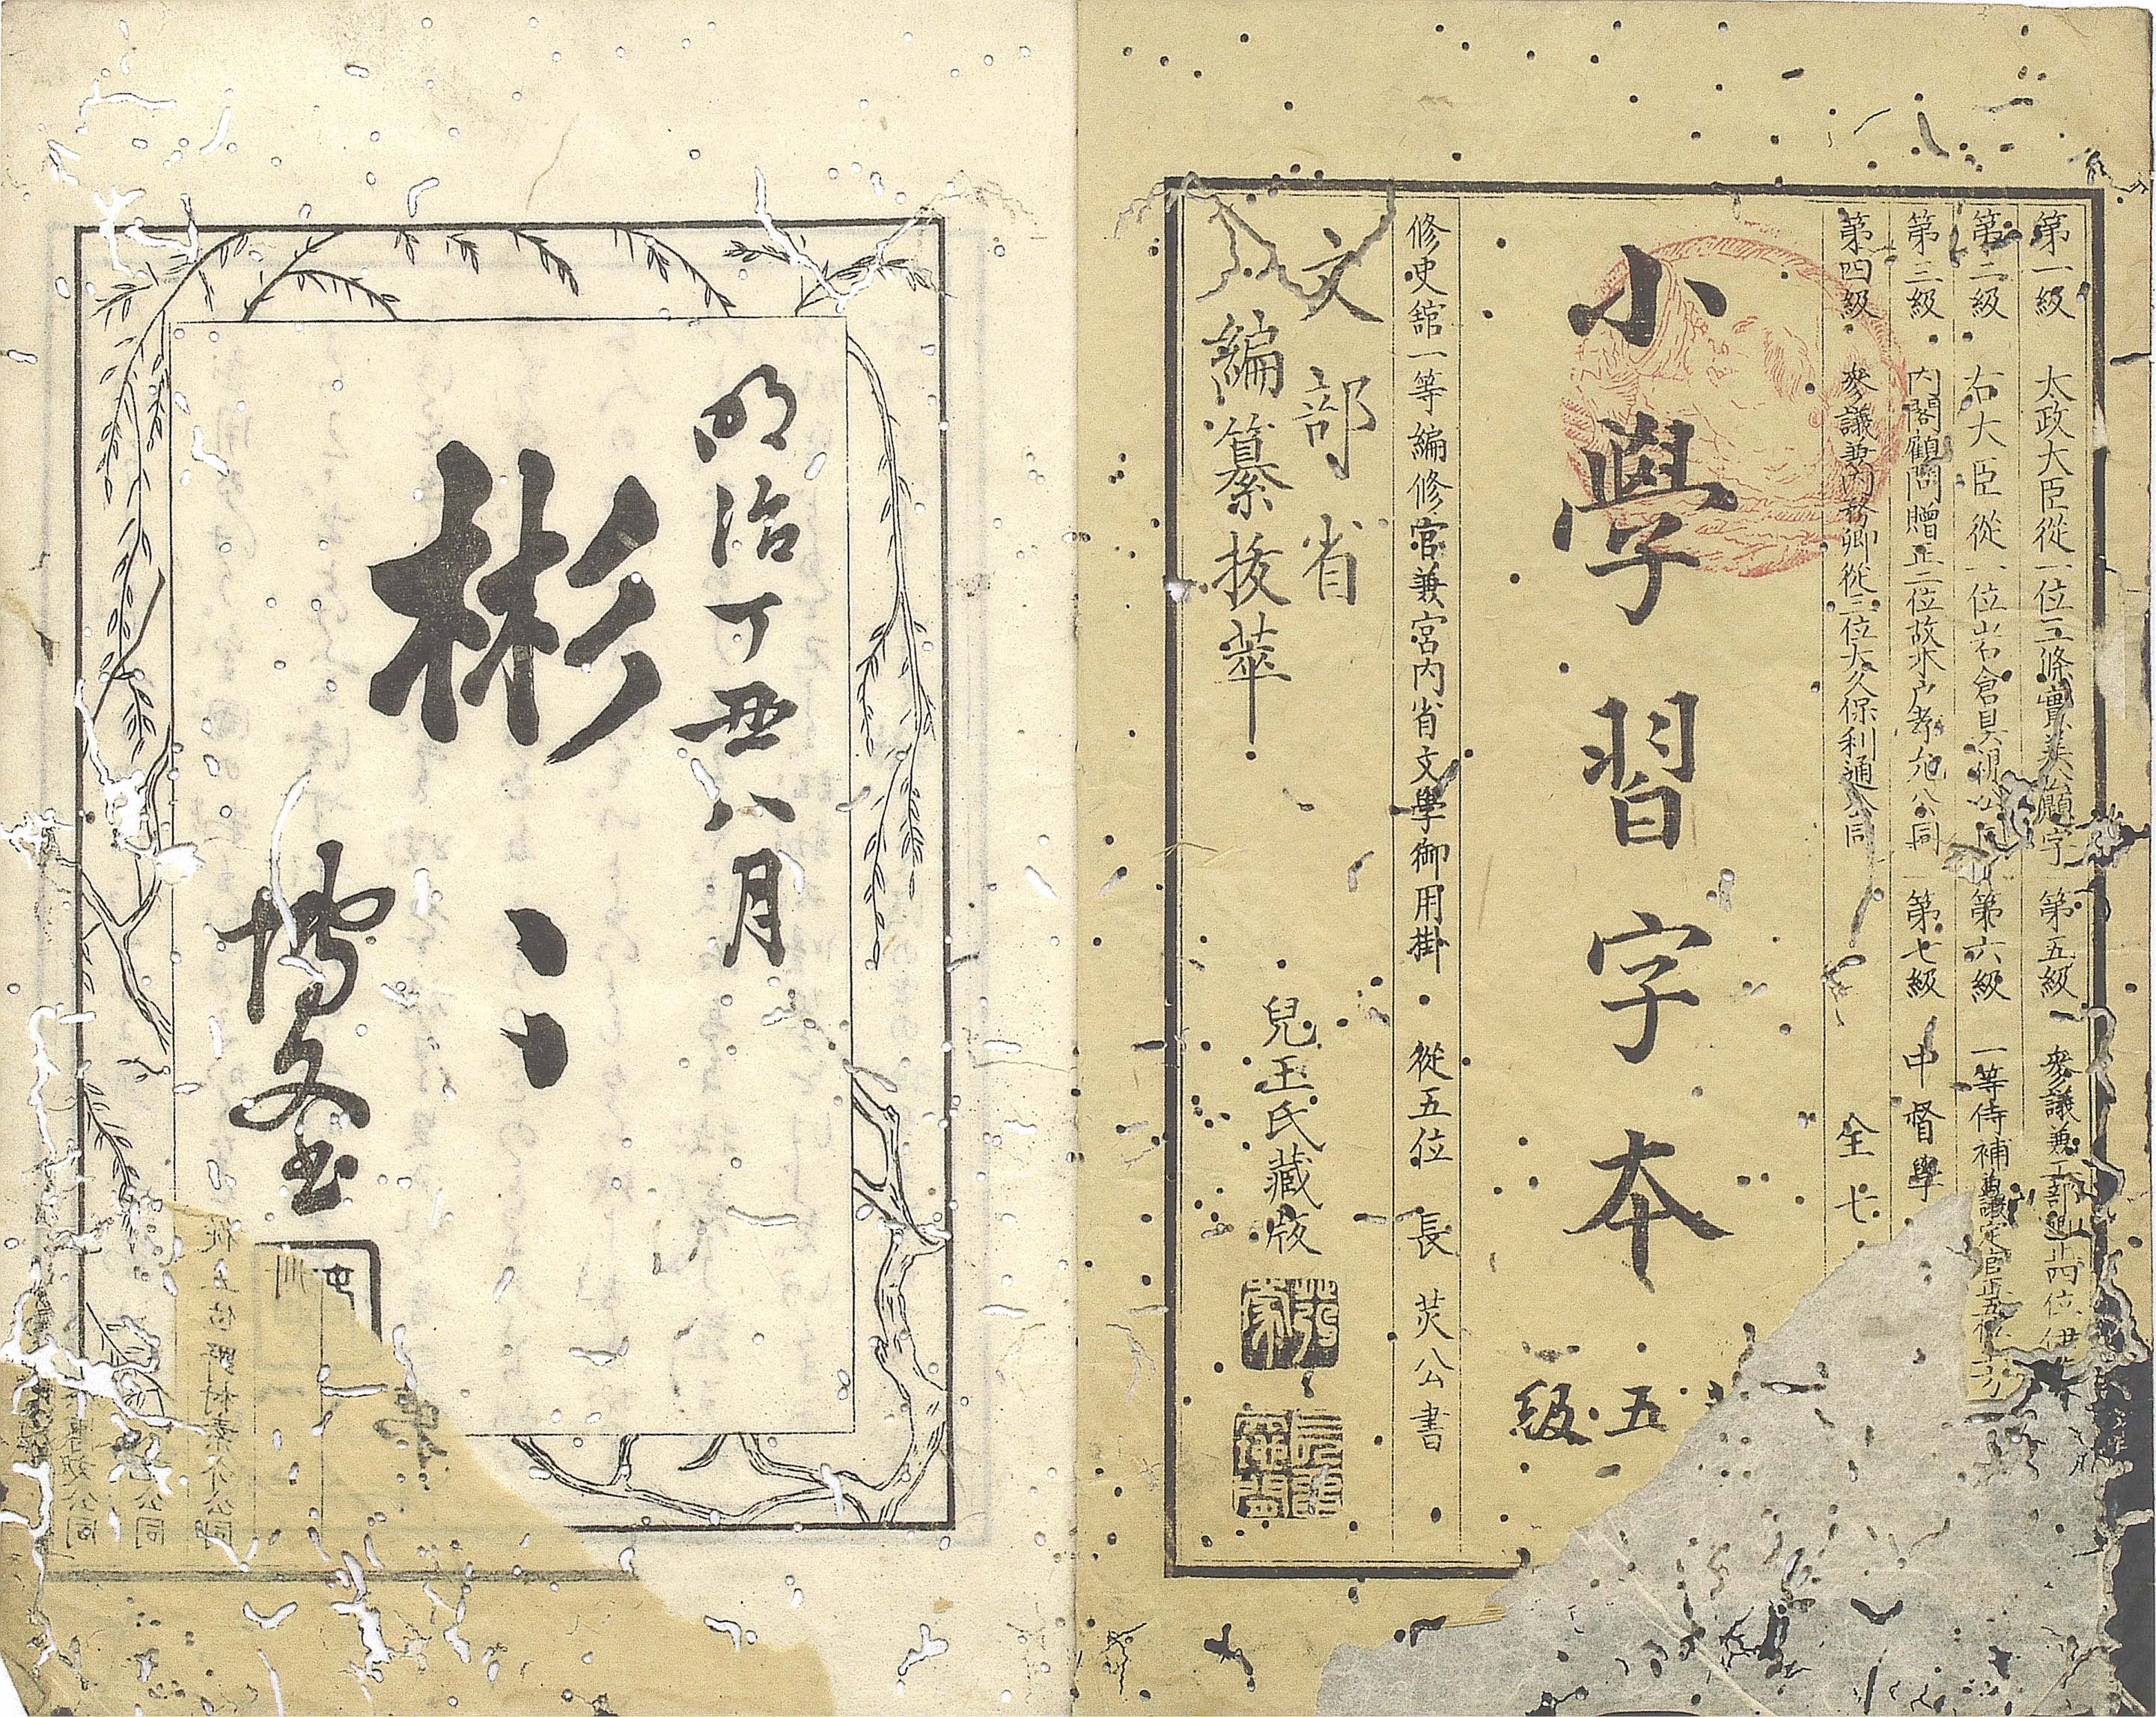 第一級 太政大臣從一位三條實美公題字 第五級 參議兼工部卿正四位伊
第二級 右大臣從一位岩倉具視公同 第六級 一等侍補兼議定官正五位
第三級 内閣顧問贈正二位故木戸孝允公同 第七級 中督學
第四級 參議兼内務卿從三位大久保利通公同 全七
小學習字本
五
級
修史舘一等編修官兼宮内省文學御用掛 從五位 長 炗公書
文部省
編纂抜萃
兒玉氏藏版
明治丁丑八月
彬〻
博文書
從五位野村素介公同
公同
公同